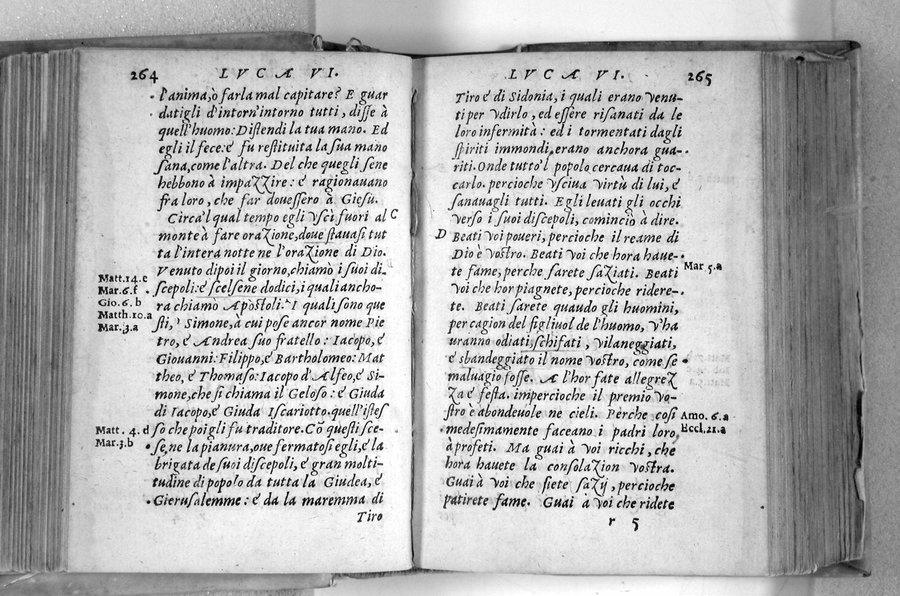 264
LVCA VI.
l'anima, o farla mal capitare? E guar
datigli d'intorn'intorno tutti, disse à
quell'huomo: Distendi la tua mano. Ed
egli il fece: é fu restituita la sua mano
sana, come l'altra. Del che quegli sene
hebbono à impazzire: é ragionauano
fra loro, che far douessero à Giesu.
Circa'l qual tempo egli vscì fuori al
C
monte à fare orazione, doue stauasi tut
ta l'intera notte ne l'orazione di Dio.
Venuto dipoi il giorno, chiamò i suoi di-
scepoli: é scelsene dodici, i quali ancho-
ra chiamò Apostoli. I quali sono que
sti, Simone, à cui pose ancor nome Pie
tro, é Andrea suo fratello: Iacopo, é
Giouanni: Filippo, é Bartholomeo: Mat
theo, é Thomaso: Iacopo d'Alfeo, é Si-
mone, che si chiama il Geloso: é Giuda
di Iacopo, é Giuda Iscariotto, quell'istes
so che poi gli fu traditore. Cõ questi sce-
se, ne la pianura, oue fermatosi egli, é la
brigata de suoi discepoli, é gran molti-
tudine di popolo da tutta la Giudea, é
Gierusalemme: é da la maremma di
Tiro
Matt.14.e
Mar.6.f
Gio.6.b
Matth.10.a
Mar.3.a
Matt. 4.d
Mar.3.b
LVCA VI.
265
Tiro é di Sidonia, i quali erano venu-
ti per vdirlo, ed essere risanati da le
loro infermità: ed i tormentati dagli
spiriti immondi, erano anchora gua-
riti. Onde tutto'l popolo cercaua di toc-
carlo. percioche vsciua virtù di lui, é
sanauagli tutti. Egli leuati gli occhi
verso i suoi discepoli, cominciò à dire.
D
Beati voi poueri, percioche il reame di
Dio è vostro. Beati voi che hora haue-
te fame, perche sarete saziati. Beati
voi che hor piagnete, percioche ridere-
te. Beati sarete quando gli huomini,
per cagion del figliuol de l'huomo, v'ha
uranno odiati, schifati, vilaneggiati,
é sbandeggiato il nome vostro, come se
maluagio fosse. A l'hor fate allegrez
za é festa. impercioche il premio vo-
stro è abondeuole ne cieli. Perche cosi
medesimamente faceano i padri loro,
à profeti. Ma guai à voi ricchi, che
hora hauete la consolazion vostra.
Guai à voi che siete sazij, percioche
patirete fame. Guai à voi che ridete
r 5
Mar 5.a
Amo.6.a
Eccl.21.a